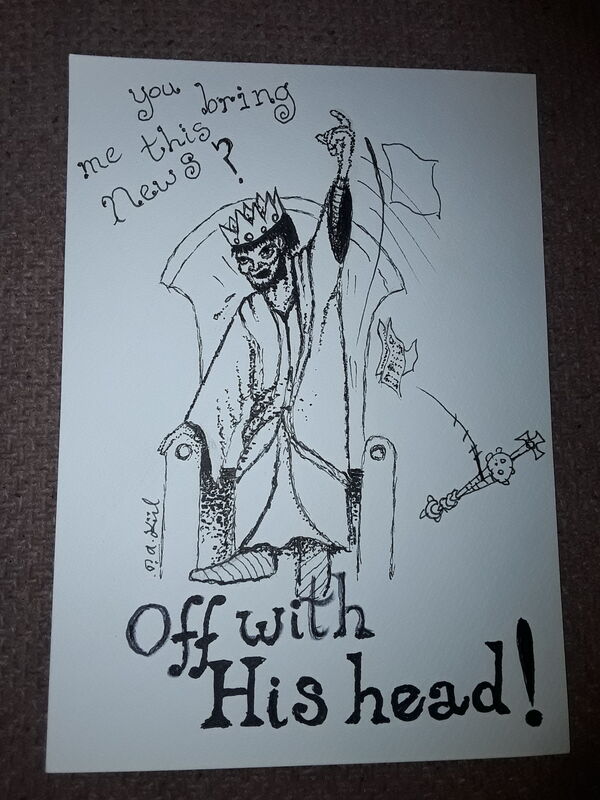 you bring
me this
News?
Off with
His head!